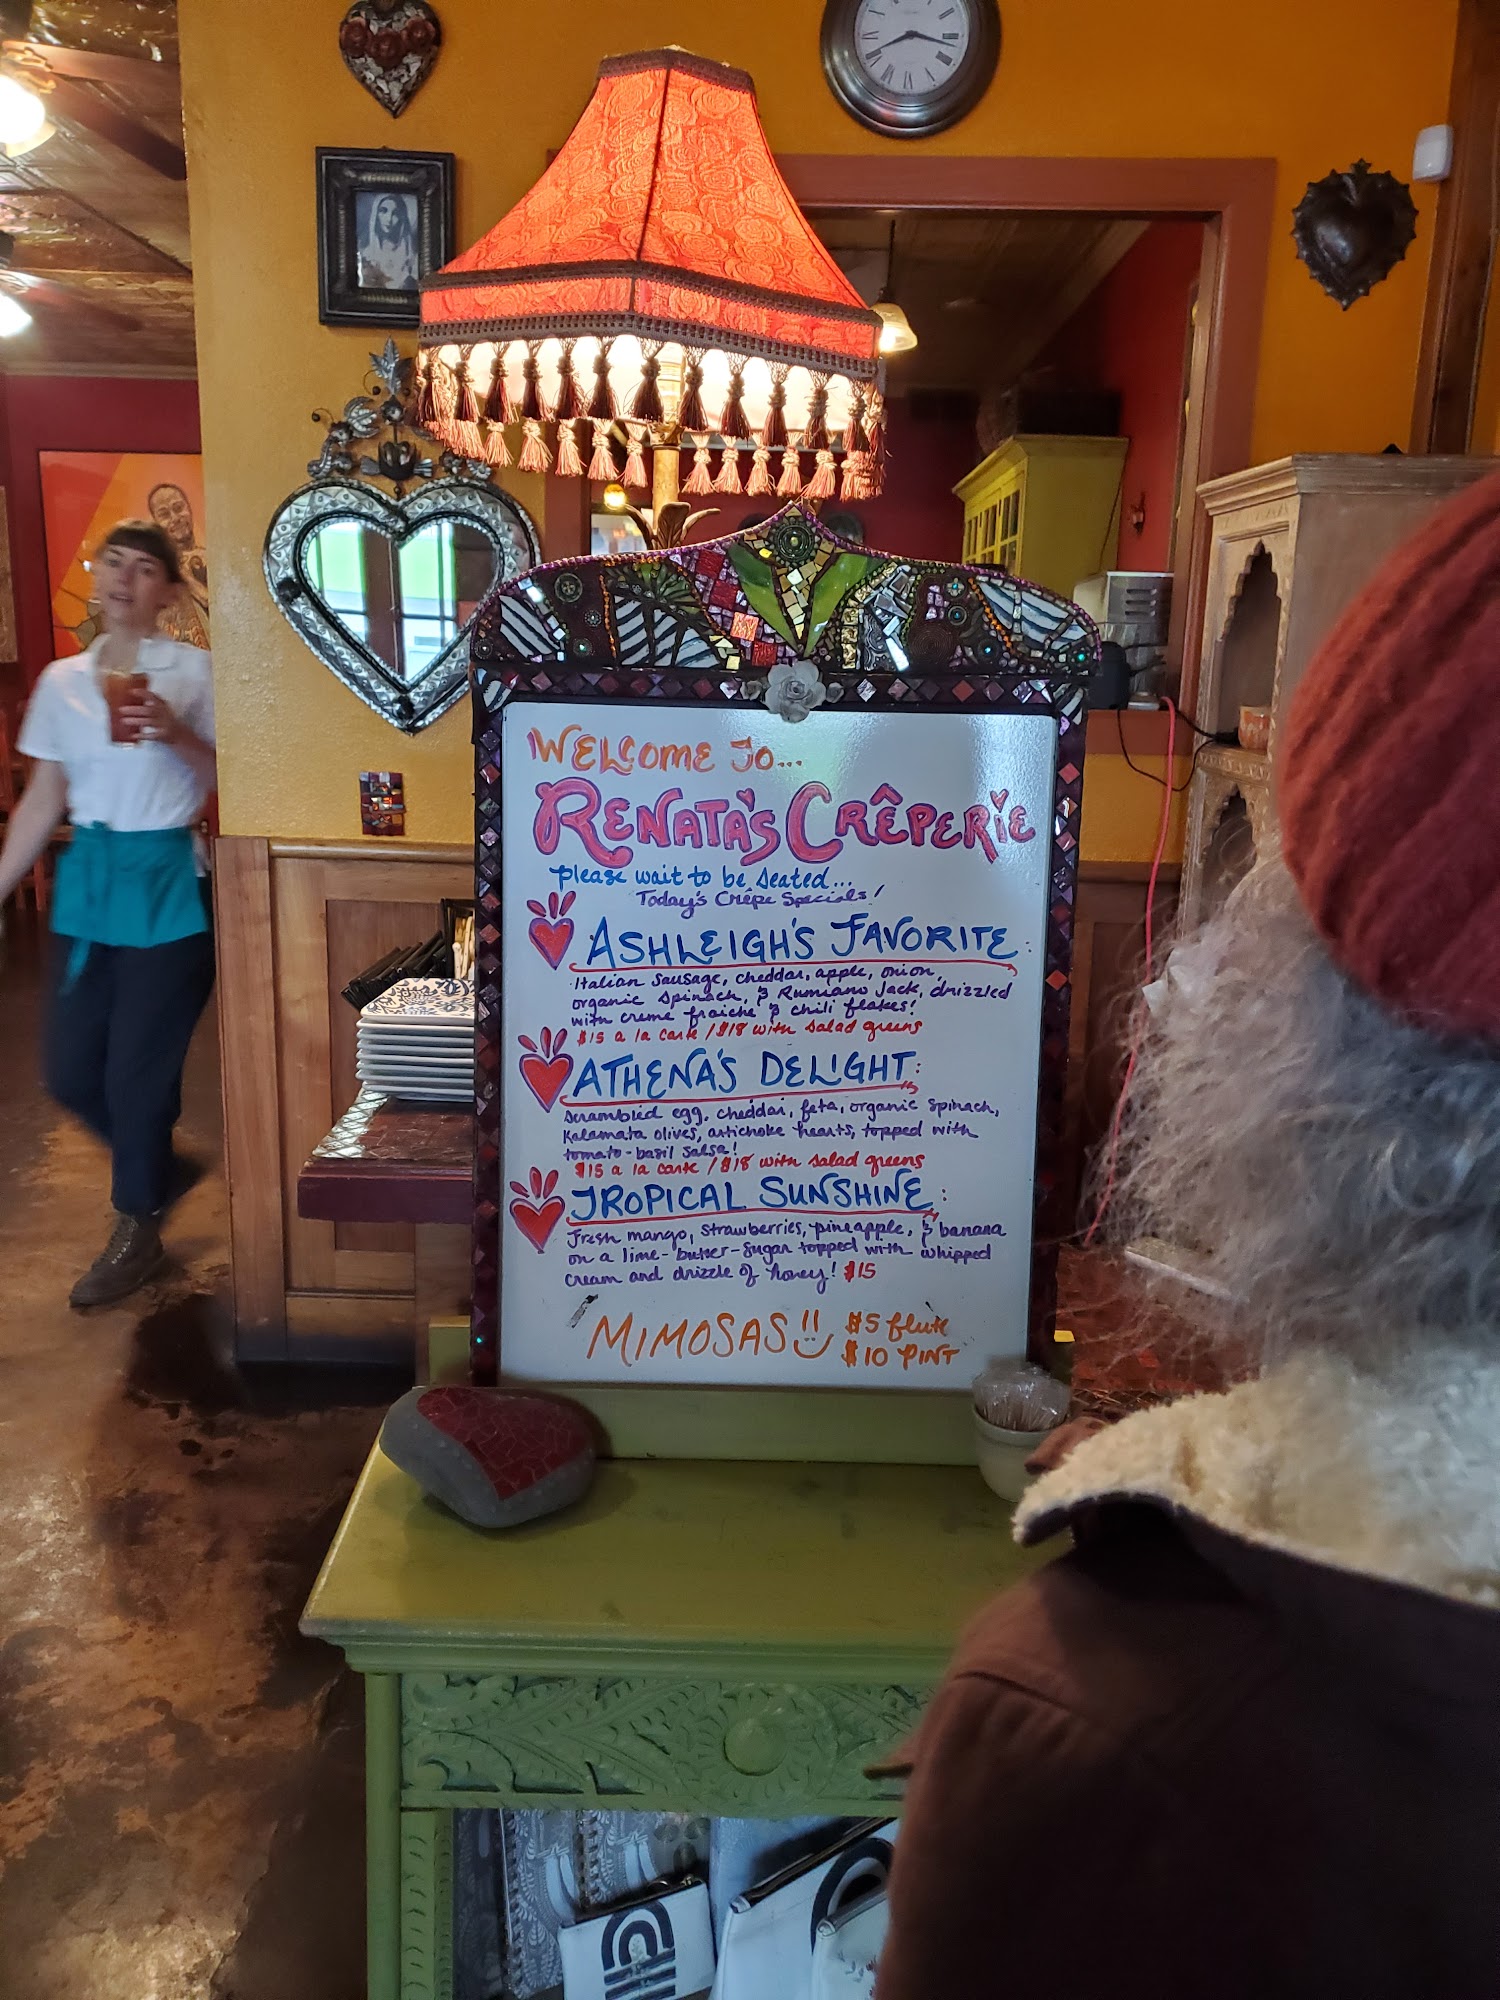 WELCOME TO...
RENATA'S CRÊPERIE
please wait to be seated...
Today's Crêpe Specials!
ASHLEIGH'S FAVORITE:
Italian Sausage, cheddar, apple, onion,
organic spinach, & Rumiano Jack, drizzled
with creme fraiche & chili flakes!
$15 a la carte / $18 with salad greens
ATHENA'S DELIGHT:
Scrambled egg, cheddar, feta, organic spinach,
Kalamata olives, artichoke hearts, topped with
tomato-basil salsa!
$15 a la carte / $18 with salad greens
TROPICAL SUNSHINE:
Fresh mango, strawberries, pineapple, & banana
on a lime-butter-sugar topped with whipped
cream and drizzle of honey! $15
MIMOSAS!! $5 flute
$10 PINT